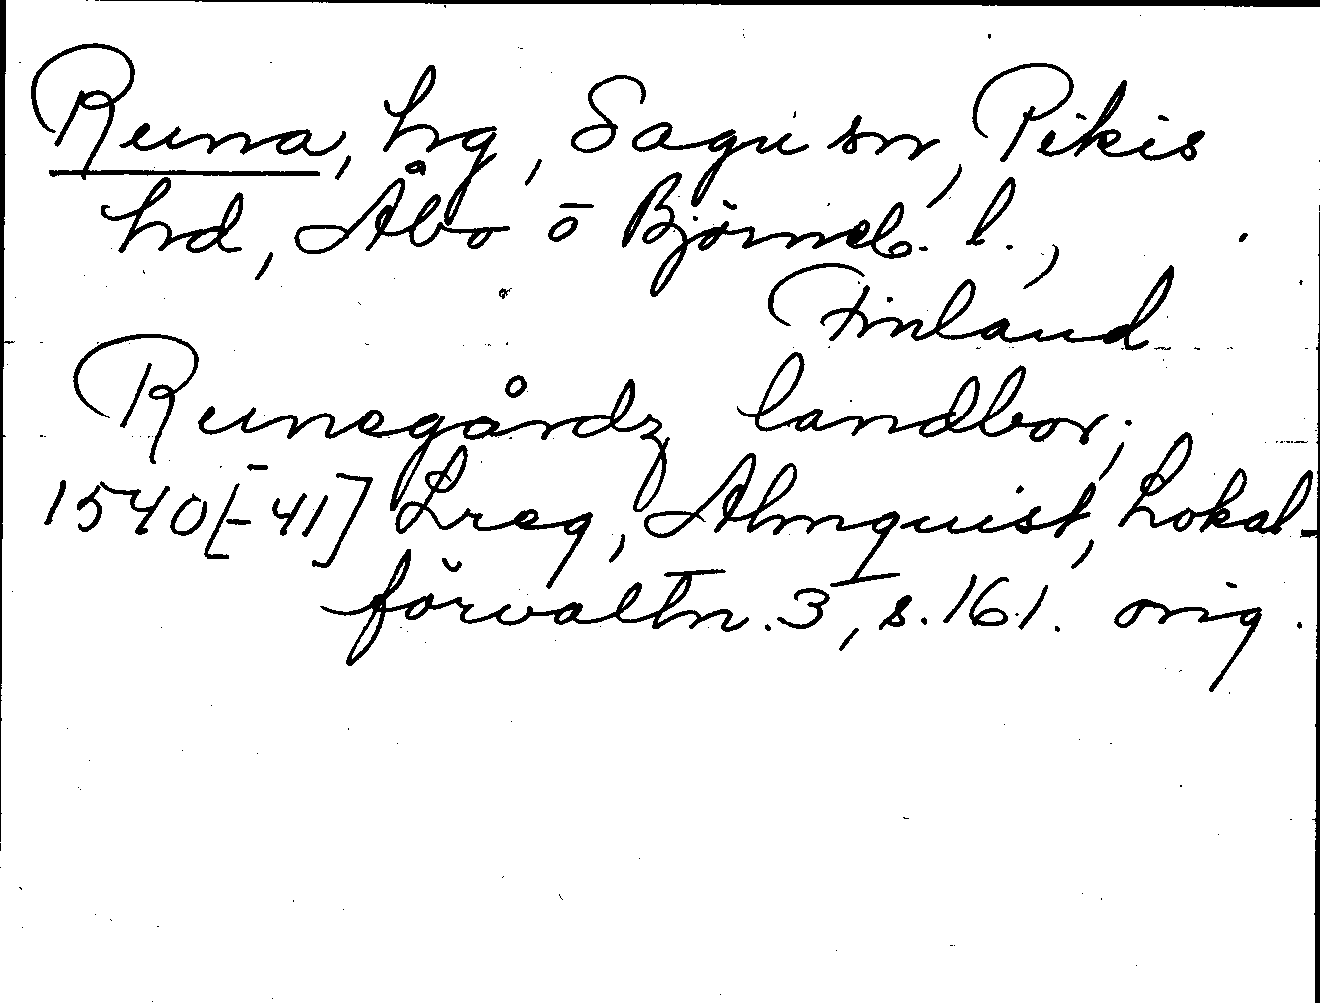 Runa, hg, Sagu sn, Pikis
hd, Åbo o Björneb. l.,
Finland
Runegårdz landbor,
1540[-41] Lreg, Almquist, Lokal-
förvaltn. 3, s. 161. orig.